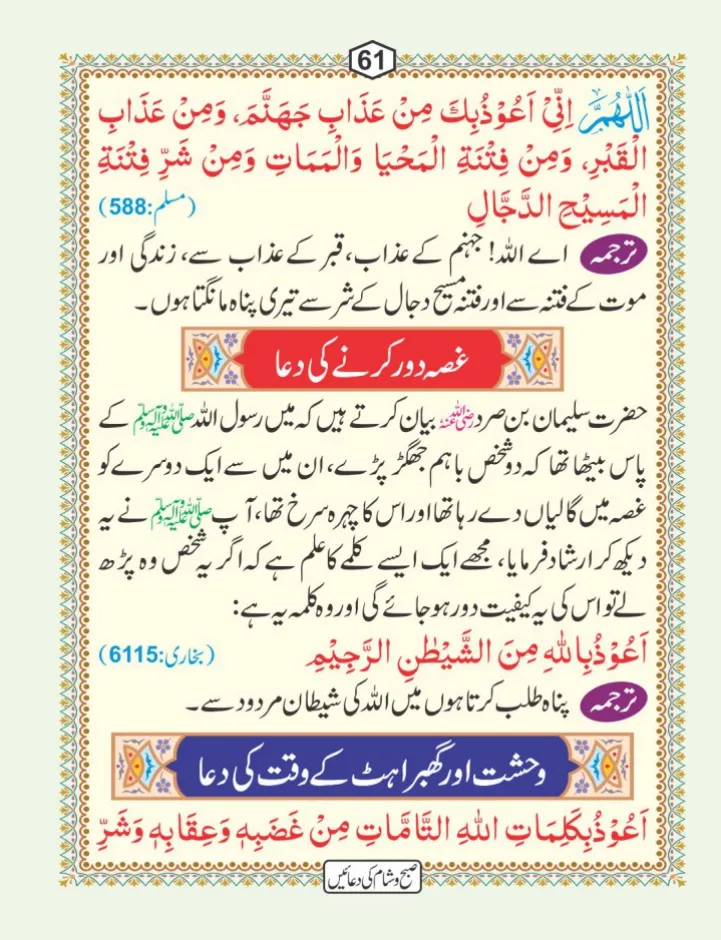 61
اَللّٰهُمَّ اِنِّيْ اَعُوْذُبِكَ مِنْ عَذَابِ جَهَنَّمَ، وَمِنْ عَذَابِ
الْقَبْرِ، وَمِنْ فِتْنَةِ الْمَحْيَا وَالْمَمَاتِ وَمِنْ شَرِّ فِتْنَةِ
الْمَسِيْحِ الدَّجَّالِ (مسلم:588)
ترجمہ اے اللہ! جہنم کے عذاب، قبر کے عذاب سے، زندگی اور
موت کے فتنہ سے اور فتنہ مسیح دجال کے شر سے تیری پناہ مانگتا ہوں۔
غصہ دور کرنے کی دعا
حضرت سلیمان بن صرد رضی اللہ عنہ بیان کرتے ہیں کہ میں رسول اللہ صلی اللہ علیہ وآلہ وسلم کے
پاس بیٹھا تھا کہ دو شخص باہم جھگڑ پڑے، ان میں سے ایک دوسرے کو
غصہ میں گالیاں دے رہا تھا اور اس کا چہرہ سرخ تھا، آپ صلی اللہ علیہ وآلہ وسلم نے یہ
دیکھ کر ارشاد فرمایا، مجھے ایک ایسے کلمے کا علم ہے کہ اگر یہ شخص وہ پڑھ
لے تو اس کی یہ کیفیت دور ہو جائے گی اور وہ کلمہ یہ ہے:
اَعُوْذُ بِاللّٰهِ مِنَ الشَّيْطٰنِ الرَّجِيْمِ (بخاری:6115)
ترجمہ پناہ طلب کرتا ہوں میں اللہ کی شیطان مردود سے۔
وحشت اور گھبراہٹ کے وقت کی دعا
اَعُوْذُ بِكَلِمَاتِ اللّٰهِ التَّامَّاتِ مِنْ غَضَبِهٖ وَعِقَابِهٖ وَشَرِّ
صبح و شام کی دعائیں